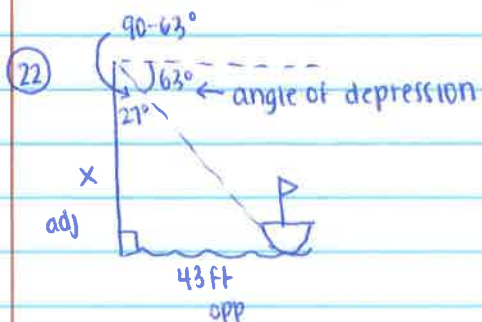 90-63°
22
63° ← angle of depression
27°
x
adj
43 ft
opp